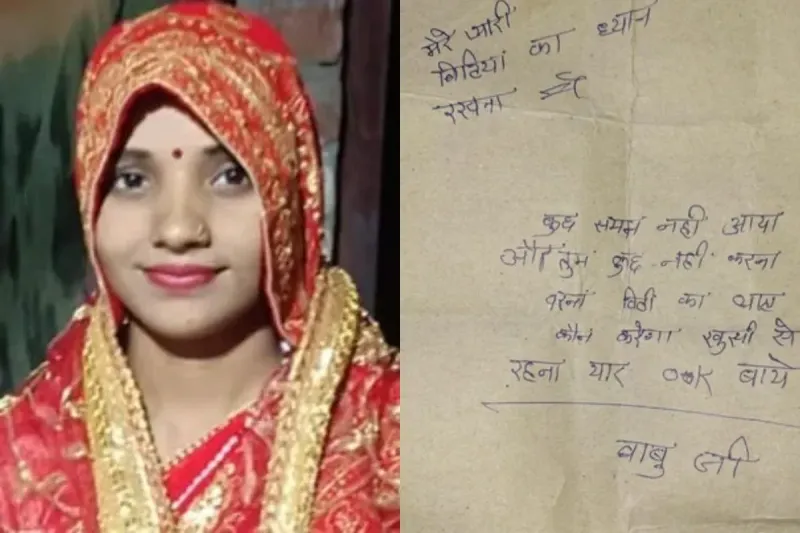 मेरे प्यारी
बिटियां का ध्यान
रखना
कुछ समझ नही आया
और तुम कुछ नही करना
वरना बिटी का ख्याल
कौन करेगा खुसी से
रहना यार ook बाये
बाबु जी